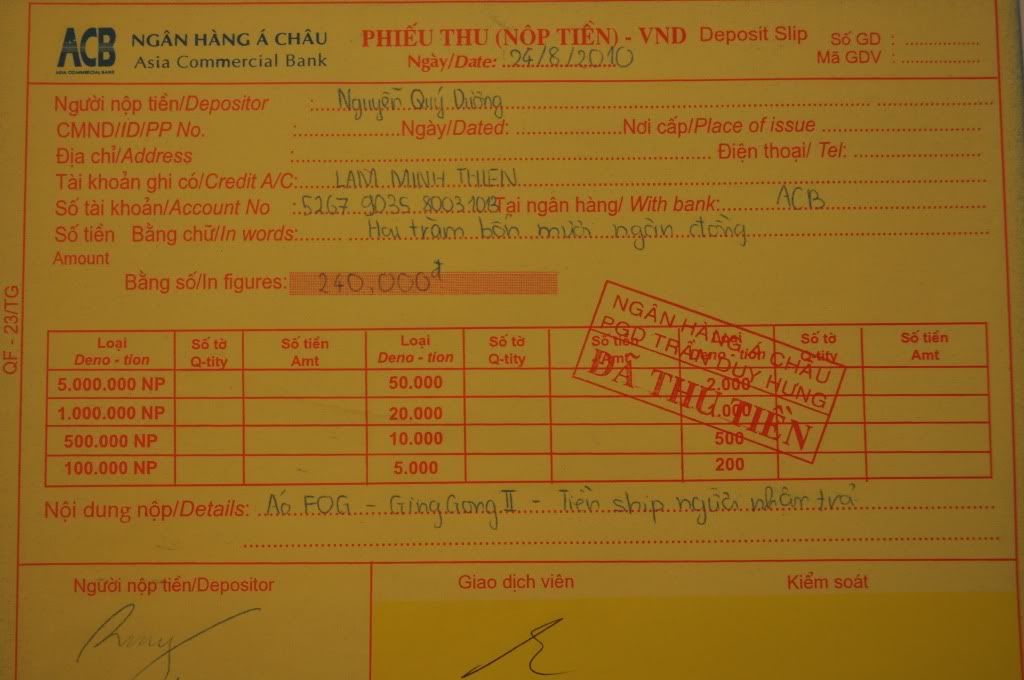 ACB NGÂN HÀNG Á CHÂU PHIẾU THU (NỘP TIỀN) - VND Deposit Slip Số GD :
ASIA COMMERCIAL BANK Asia Commercial Bank Ngày/Date: 24/8/2010 Mã GDV :
Người nộp tiền/Depositor : Nguyễn Quý Dương
CMND/ID/PP No. : Ngày/Dated: Nơi cấp/Place of issue
Địa chỉ/Address : Điện thoại/ Tel:
Tài khoản ghi có/Credit A/C: LAM MINH THIEN
Số tài khoản/Account No : 5267 9035 80031013 Tại ngân hàng/ With bank: ACB
Số tiền Bằng chữ/In words: Hai trăm bốn mươi ngàn đồng
Amount
Bằng số/In figures: 240,000đ
QF - 23/TG
Loại Số tờ Số tiền Loại Số tờ Số tiền Loại Số tờ Số tiền
Deno - tion Q-tity Amt Deno - tion Q-tity Amt Deno - tion Q-tity Amt
5.000.000 NP 50.000 2.000
1.000.000 NP 20.000 1.000
500.000 NP 10.000 500
100.000 NP 5.000 200
NGÂN HÀNG Á CHÂU
PGD TRẦN DUY HƯNG
ĐÃ THU TIỀN
Nội dung nộp/Details: Áo FOG - GingGong II - Tiền ship người nhận trả
Người nộp tiền/Depositor Giao dịch viên Kiểm soát